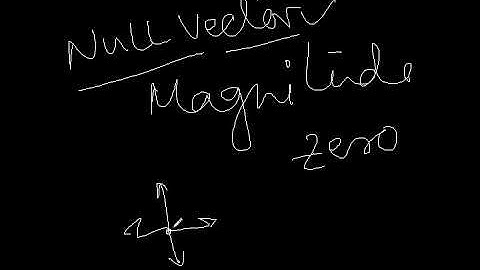 Null Vector
Magnitude
zero